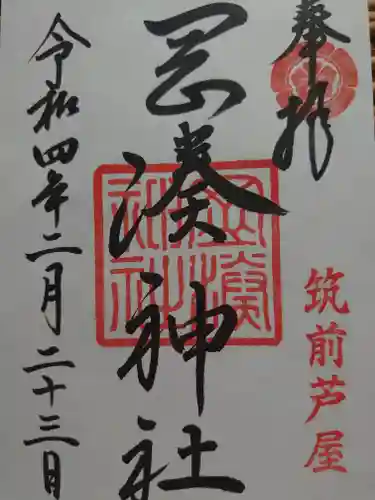 奉拝
筑前芦屋
岡湊神社
令和四年二月二十三日